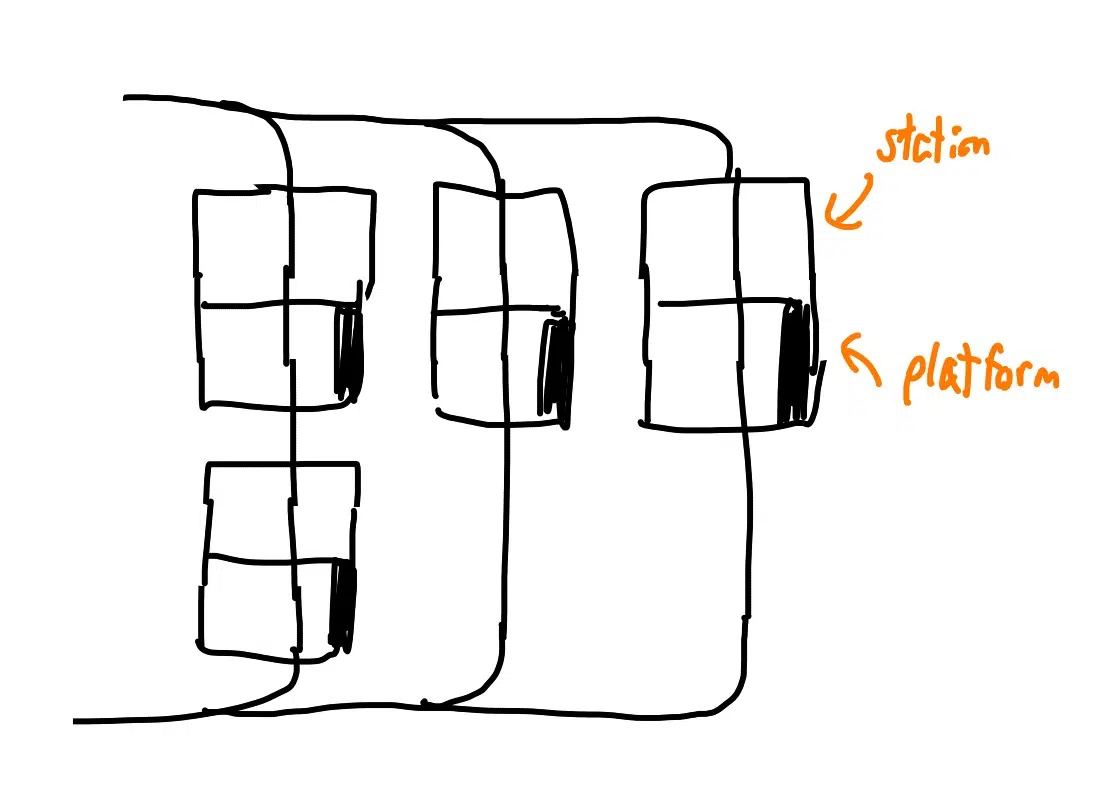 station
platform